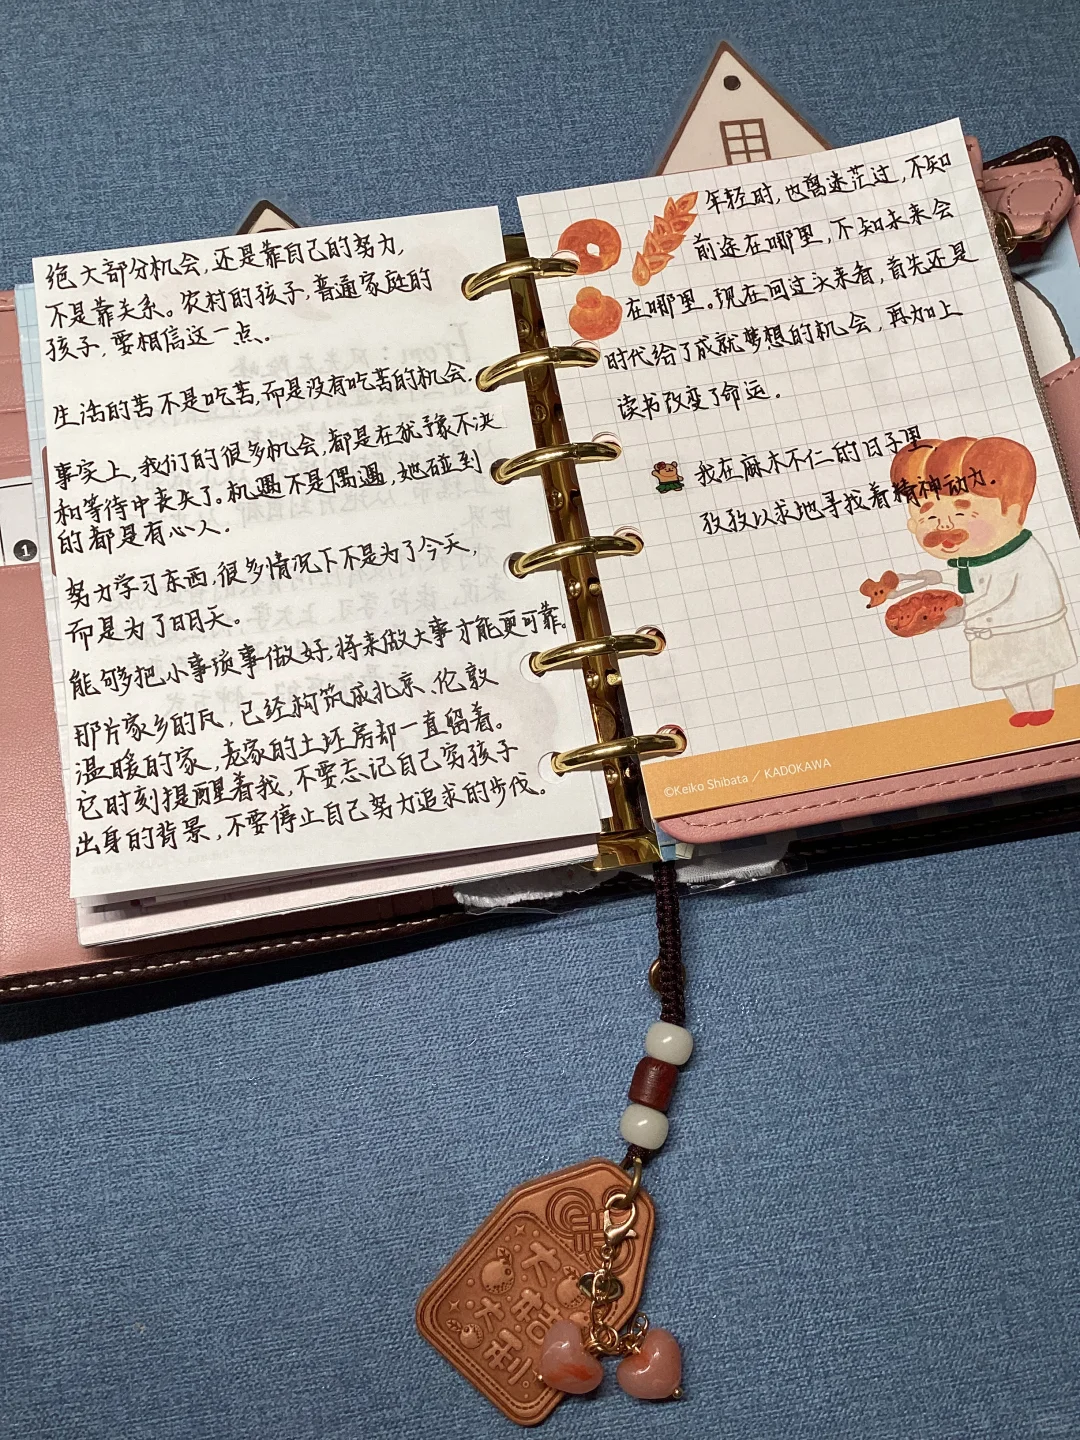 绝大部分机会,还是靠自己的努力,
不是靠关系。农村的孩子,普通家庭的
孩子,要相信这一点。
生活的苦不是吃苦,而是没有吃苦的机会.
事实上,我们的很多机会,都是在犹豫不决
和等待中丧失了。机遇不是偶遇,她碰到
的都是有心人.
努力学习东西,很多情况下不是为了今天,
而是为了明天。
能够把小事琐事做好,将来做大事才能更可靠。
那片家乡的瓦,已经构筑成北京、伦敦
温暖的家,老家的土坯房却一直留着。
它时刻提醒着我,不要忘记自己穷孩子
出身的背景,不要停止自己努力追求的步伐。
年轻时,也曾迷茫过,不知
前途在哪里,不知未来会
在哪里。现在回过头来看,首先还是
时代给了成就梦想的机会,再加上
读书改变了命运.
我在麻木不仁的日子里,
孜孜以求地寻找着精神动力.
©Keiko Shibata / KADOKAWA
1
大吉
大利